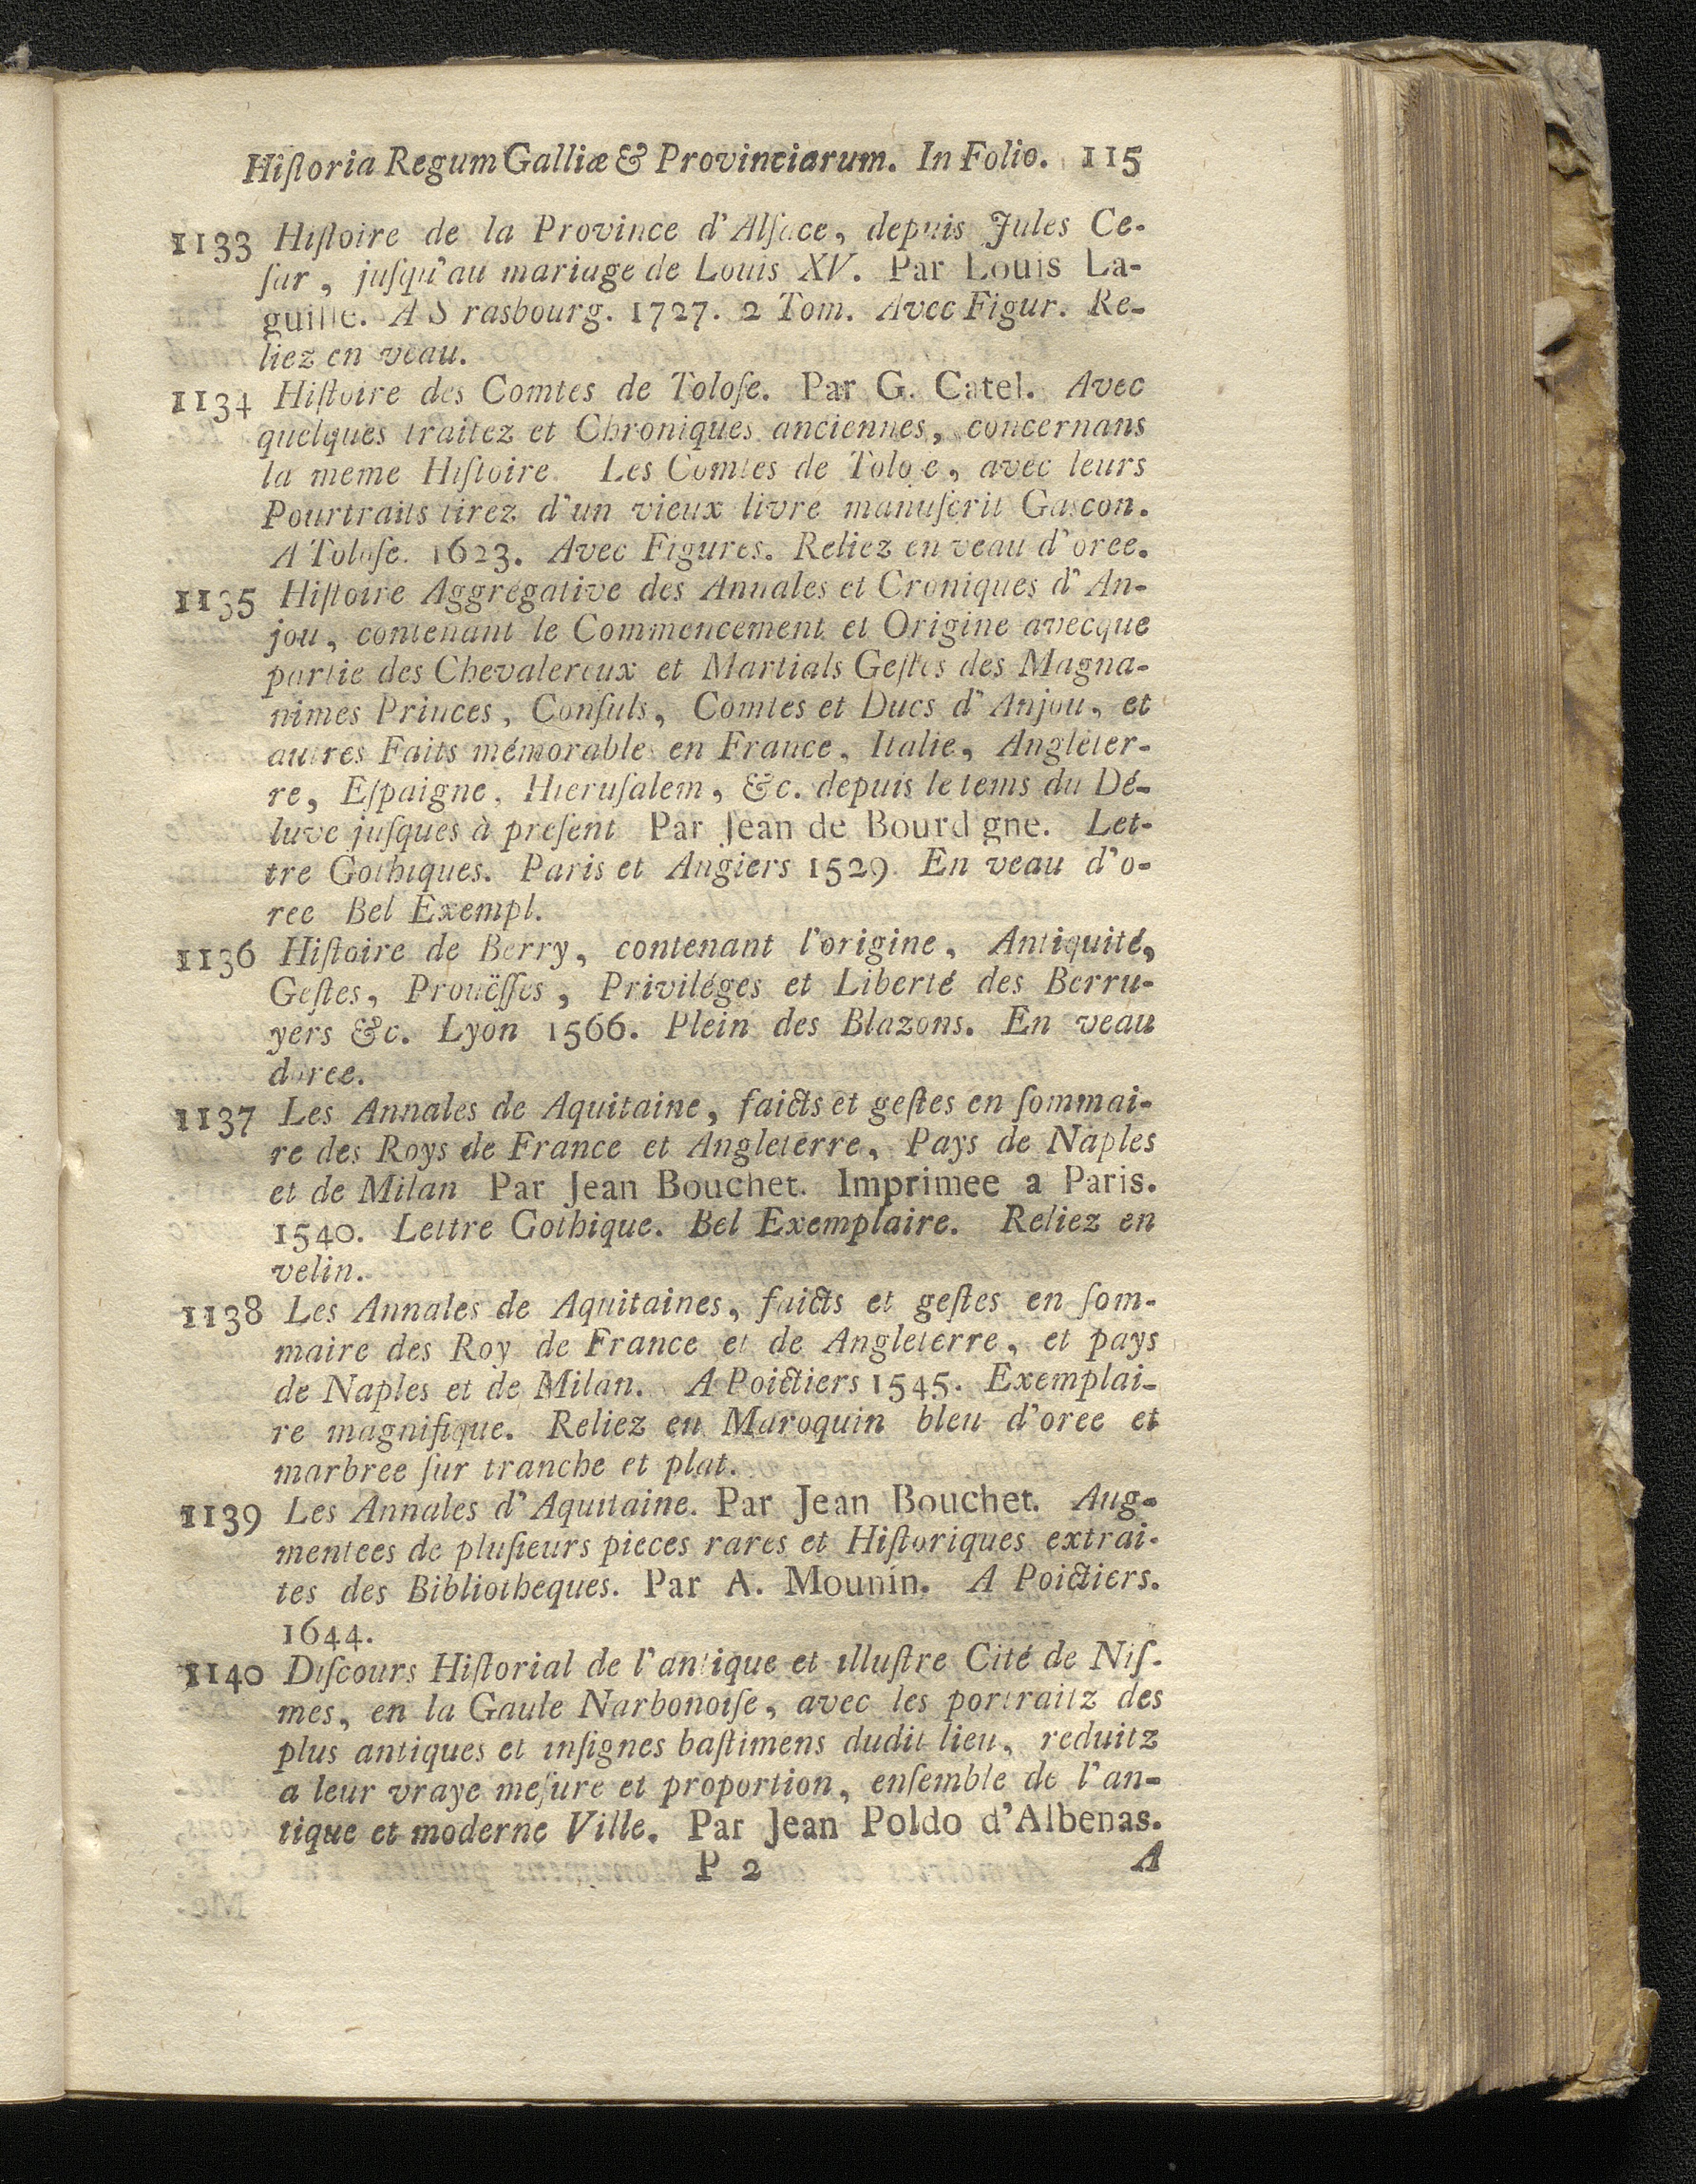 Hiſtoria Regum Galliæ & Provinciarum. In Folio. 115
1133 Hiſtoire de la Province d'Alſace, depuis Jules Ce-
ſar, juſqu'au mariage de Louis XV. Par Louis La-
guille. A S rasbourg. 1727. 2 Tom. Avec Figur. Re-
liez en veau.
1134 Hiſtoire des Comtes de Toloſe. Par G. Catel. Avec
quelques traitez et Chroniques anciennes, concernans
la meme Hiſtoire. Les Comtes de Tolo e, avec leurs
Pourtraits tirez d'un vieux livre manuſcrit Gascon.
A Toloſe. 1623. Avec Figures. Reliez en veau d'oree.
1135 Hiſtoire Aggregative des Annales et Croniques d'An-
jou, contenant le Commencement et Origine avecque
partie des Chevalereux et Martials Geſtes des Magna-
nimes Princes, Conſuls, Comtes et Ducs d'Anjou, et
autres Faits mémorable en France, Italie, Angleter-
re, Eſpaigne, Hieruſalem, &c. depuis le tems du Dé-
luve juſques à preſent Par Jean de Bourd gne. Let-
tre Gothiques. Paris et Angiers 1529. En veau d'o-
ree Bel Exempl.
1136 Hiſtoire de Berry, contenant l'origine, Antiquité,
Geſtes, Prouëſſes, Priviléges et Liberté des Berru-
yers &c. Lyon 1566. Plein des Blazons. En veau
doree.
1137 Les Annales de Aquitaine, faicts et geſtes en ſommai-
re des Roys de France et Angleterre, Pays de Naples
et de Milan Par Jean Bouchet. Imprimee a Paris.
1540. Lettre Gothique. Bel Exemplaire. Reliez en
velin.
1138 Les Annales de Aquitaines, faicts et geſtes en ſom-
maire des Roy de France et de Angleterre, et pays
de Naples et de Milan. A Poictiers 1545. Exemplai-
re magnifique. Reliez en Maroquin bleu d'oree et
marbree ſur tranche et plat.
1139 Les Annales d'Aquitaine. Par Jean Bouchet. Aug-
mentees de pluſieurs pieces rares et Hiſtoriques extrai-
tes des Bibliotheques. Par A. Mounin. A Poictiers.
1644.
1140 Diſcours Hiſtorial de l'antique et illuſtre Cité de Niſ-
mes, en la Gaule Narbonoiſe, avec les portraitz des
plus antiques et inſignes baſtimens dudit lieu, reduitz
a leur vraye meſure et proportion, enſemble de l'an-
tique et moderne Ville. Par Jean Poldo d'Albenas.
P 2 A